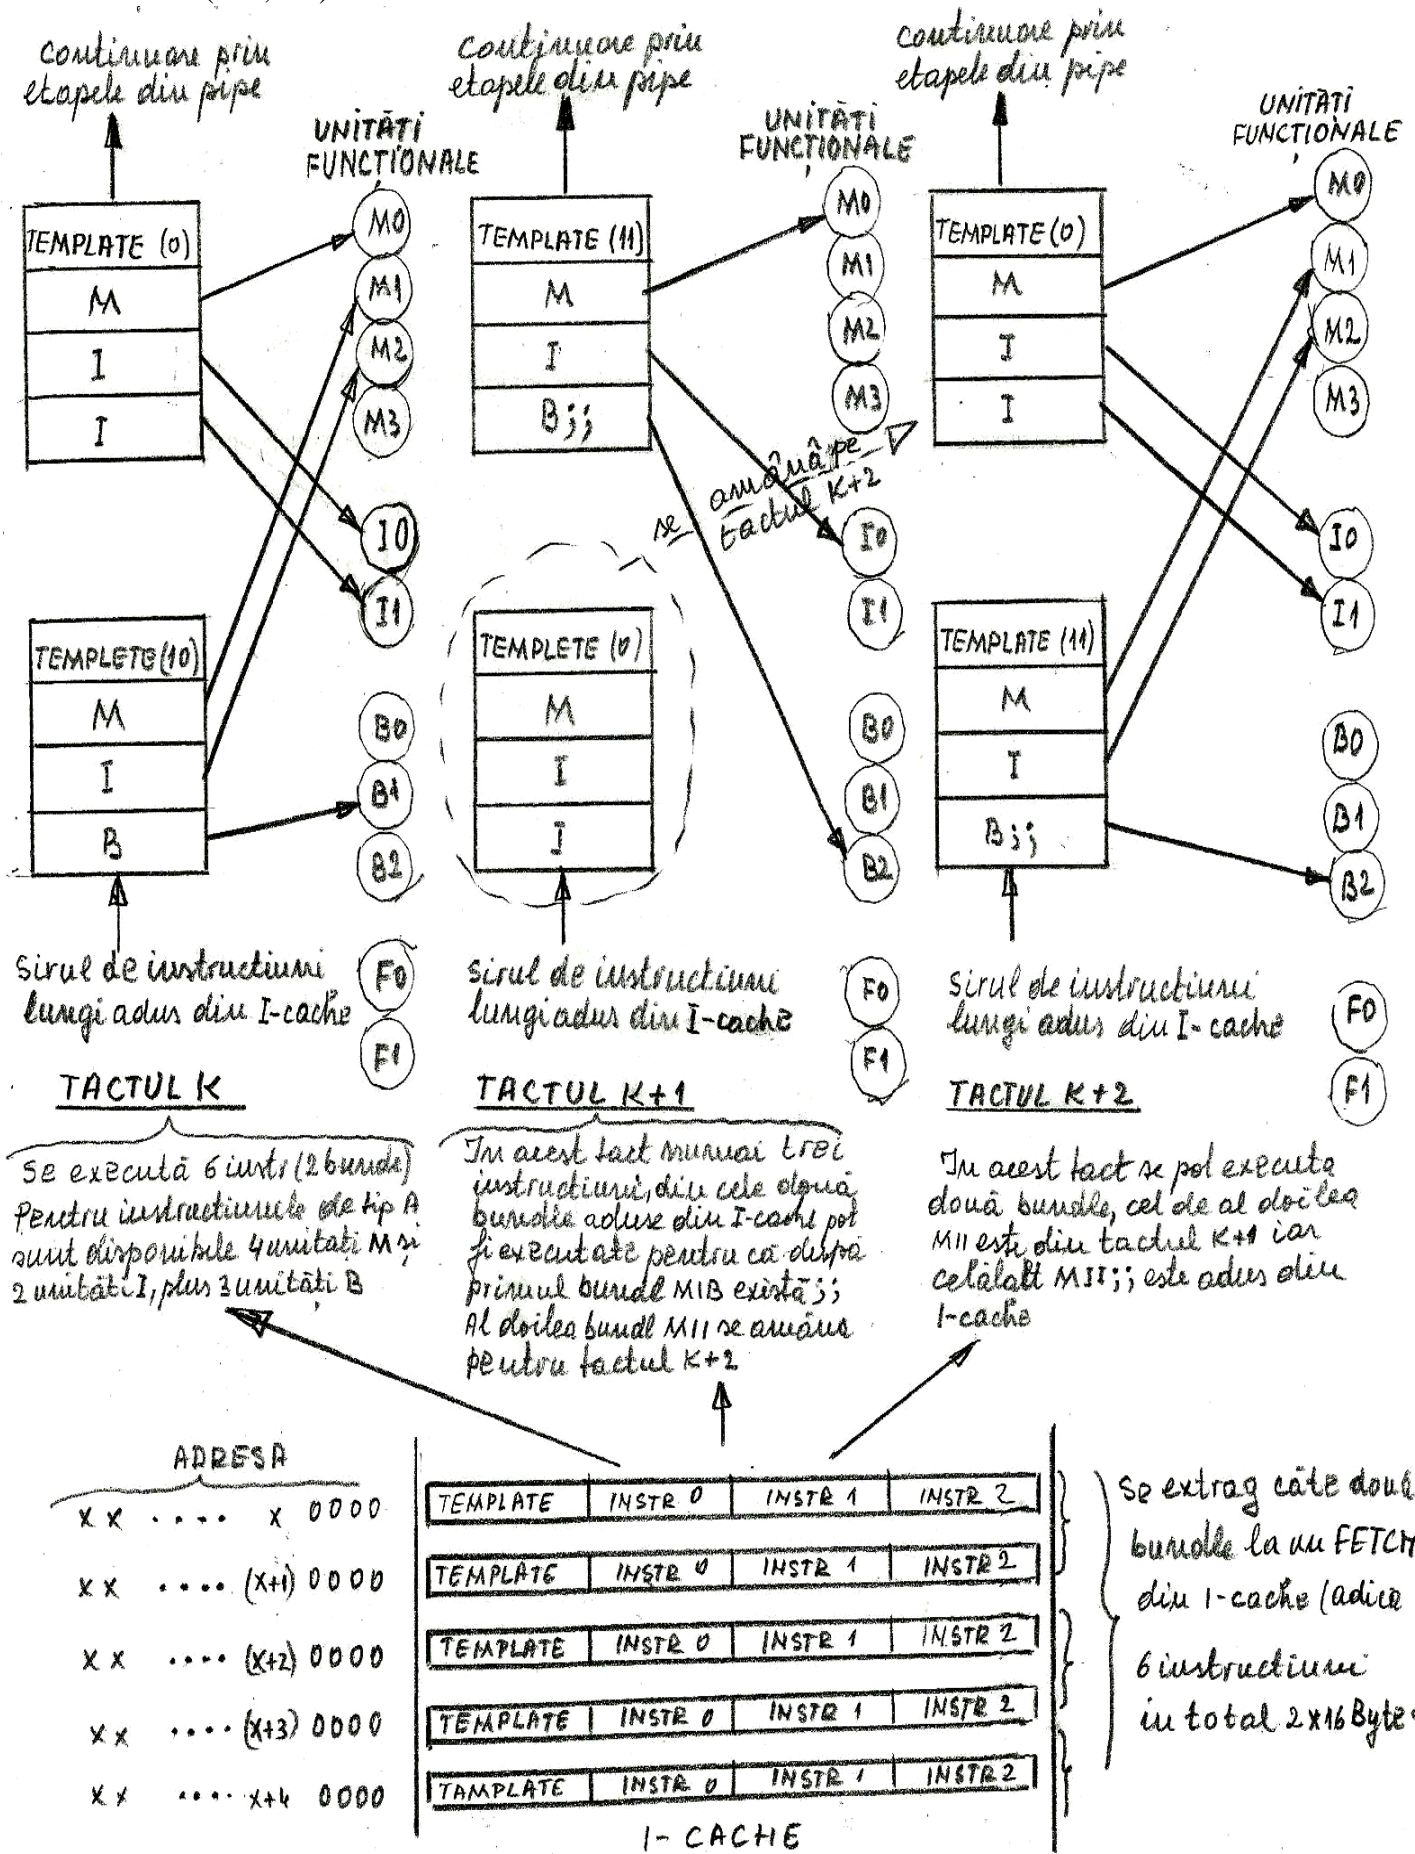 continuare prin
etapele din pipe
UNITĂȚI
FUNCȚIONALE
TEMPLATE (0)
M
I
I
M0
M1
M2
M3
I0
I1
TEMPLETE (10)
M
I
B
B0
B1
B2
Sirul de instructiuni
lungi adus din I-cache
F0
F1
TACTUL K
Se execută 6 instr (2 bundle)
Pentru instructiunile de tip A
sunt disponibile 4 unitati M și
2 unităti I, plus 3 unităti B
continuare prin
etapele din pipe
UNITĂTI
FUNCȚIONALE
TEMPLATE (11)
M
I
B;;
M0
M1
M2
M3
se amână pe
tactul K+2
I0
I1
TEMPLETE (0)
M
I
I
B0
B1
B2
Sirul de instructiuni
lungi adus din I-cache
F0
F1
TACTUL K+1
In acest tact numai trei
instructiuni, din cele două
bundle aduse din I-cache pot
fi executate pentru că după
primul bundl MIB există ;;
Al doilea bundl MII se amâna
pentru tactul K+2
continuare prin
etapele din pipe
UNITĂȚI
FUNCȚIONALE
TEMPLATE (0)
M
I
I
M0
M1
M2
M3
I0
I1
TEMPLATE (11)
M
I
B;;
B0
B1
B2
Sirul de instructiuni
lungi adus din I-cache
F0
F1
TACTUL K+2
In acest tact se pot executa
două bundle, cel de al doilea
MII este din tactul K+1 iar
celălalt MII;; este adus din
I-cache
ADRESA
x x .... x 0000 TEMPLATE INSTR 0 INSTR 1 INSTR 2
x x .... (x+1) 0000 TEMPLATE INSTR 0 INSTR 1 INSTR 2
x x .... (x+2) 0000 TEMPLATE INSTR 0 INSTR 1 INSTR 2
x x .... (x+3) 0000 TEMPLATE INSTR 0 INSTR 1 INSTR 2
x x .... x+4 0000 TAMPLATE INSTR 0 INSTR 1 INSTR 2
I-CACHE
Se extrag câte două
bundle la un FETCH
din I-cache (adica
6 instructiuni
in total 2x16 Byte